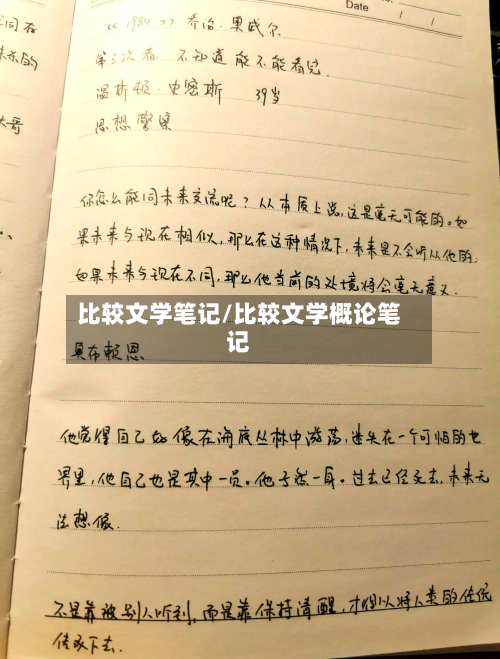 Date / /
同在
未来的
大哥
《1984》 乔治·奥威尔
第三次看 不知道能不能看完
温斯顿·史密斯 39岁
思想警察
你怎么能同未来交流呢？从本质上说，这是毫无可能的。如
果未来与现在相似，那么在这种情况下，未来是不会听从他的；
如果未来与现在不同，那么他当前的处境将会毫无意义．
比较文学笔记/比较文学概论笔
记
奥布赖恩
他觉得自己如像在海底丛林中游荡，迷失在一个可怕的世
界里，他自己也是其中一员。他孑然一身。过去已经死去，未来无
法想像．
不是靠被别人听到，而是靠保持清醒，才得以将人类的传统
传承下去．